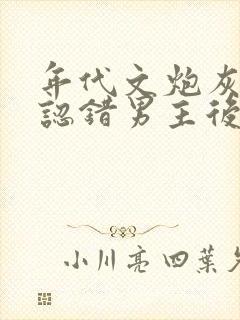 年代文炮灰
認錯男主後
小川亮四葉